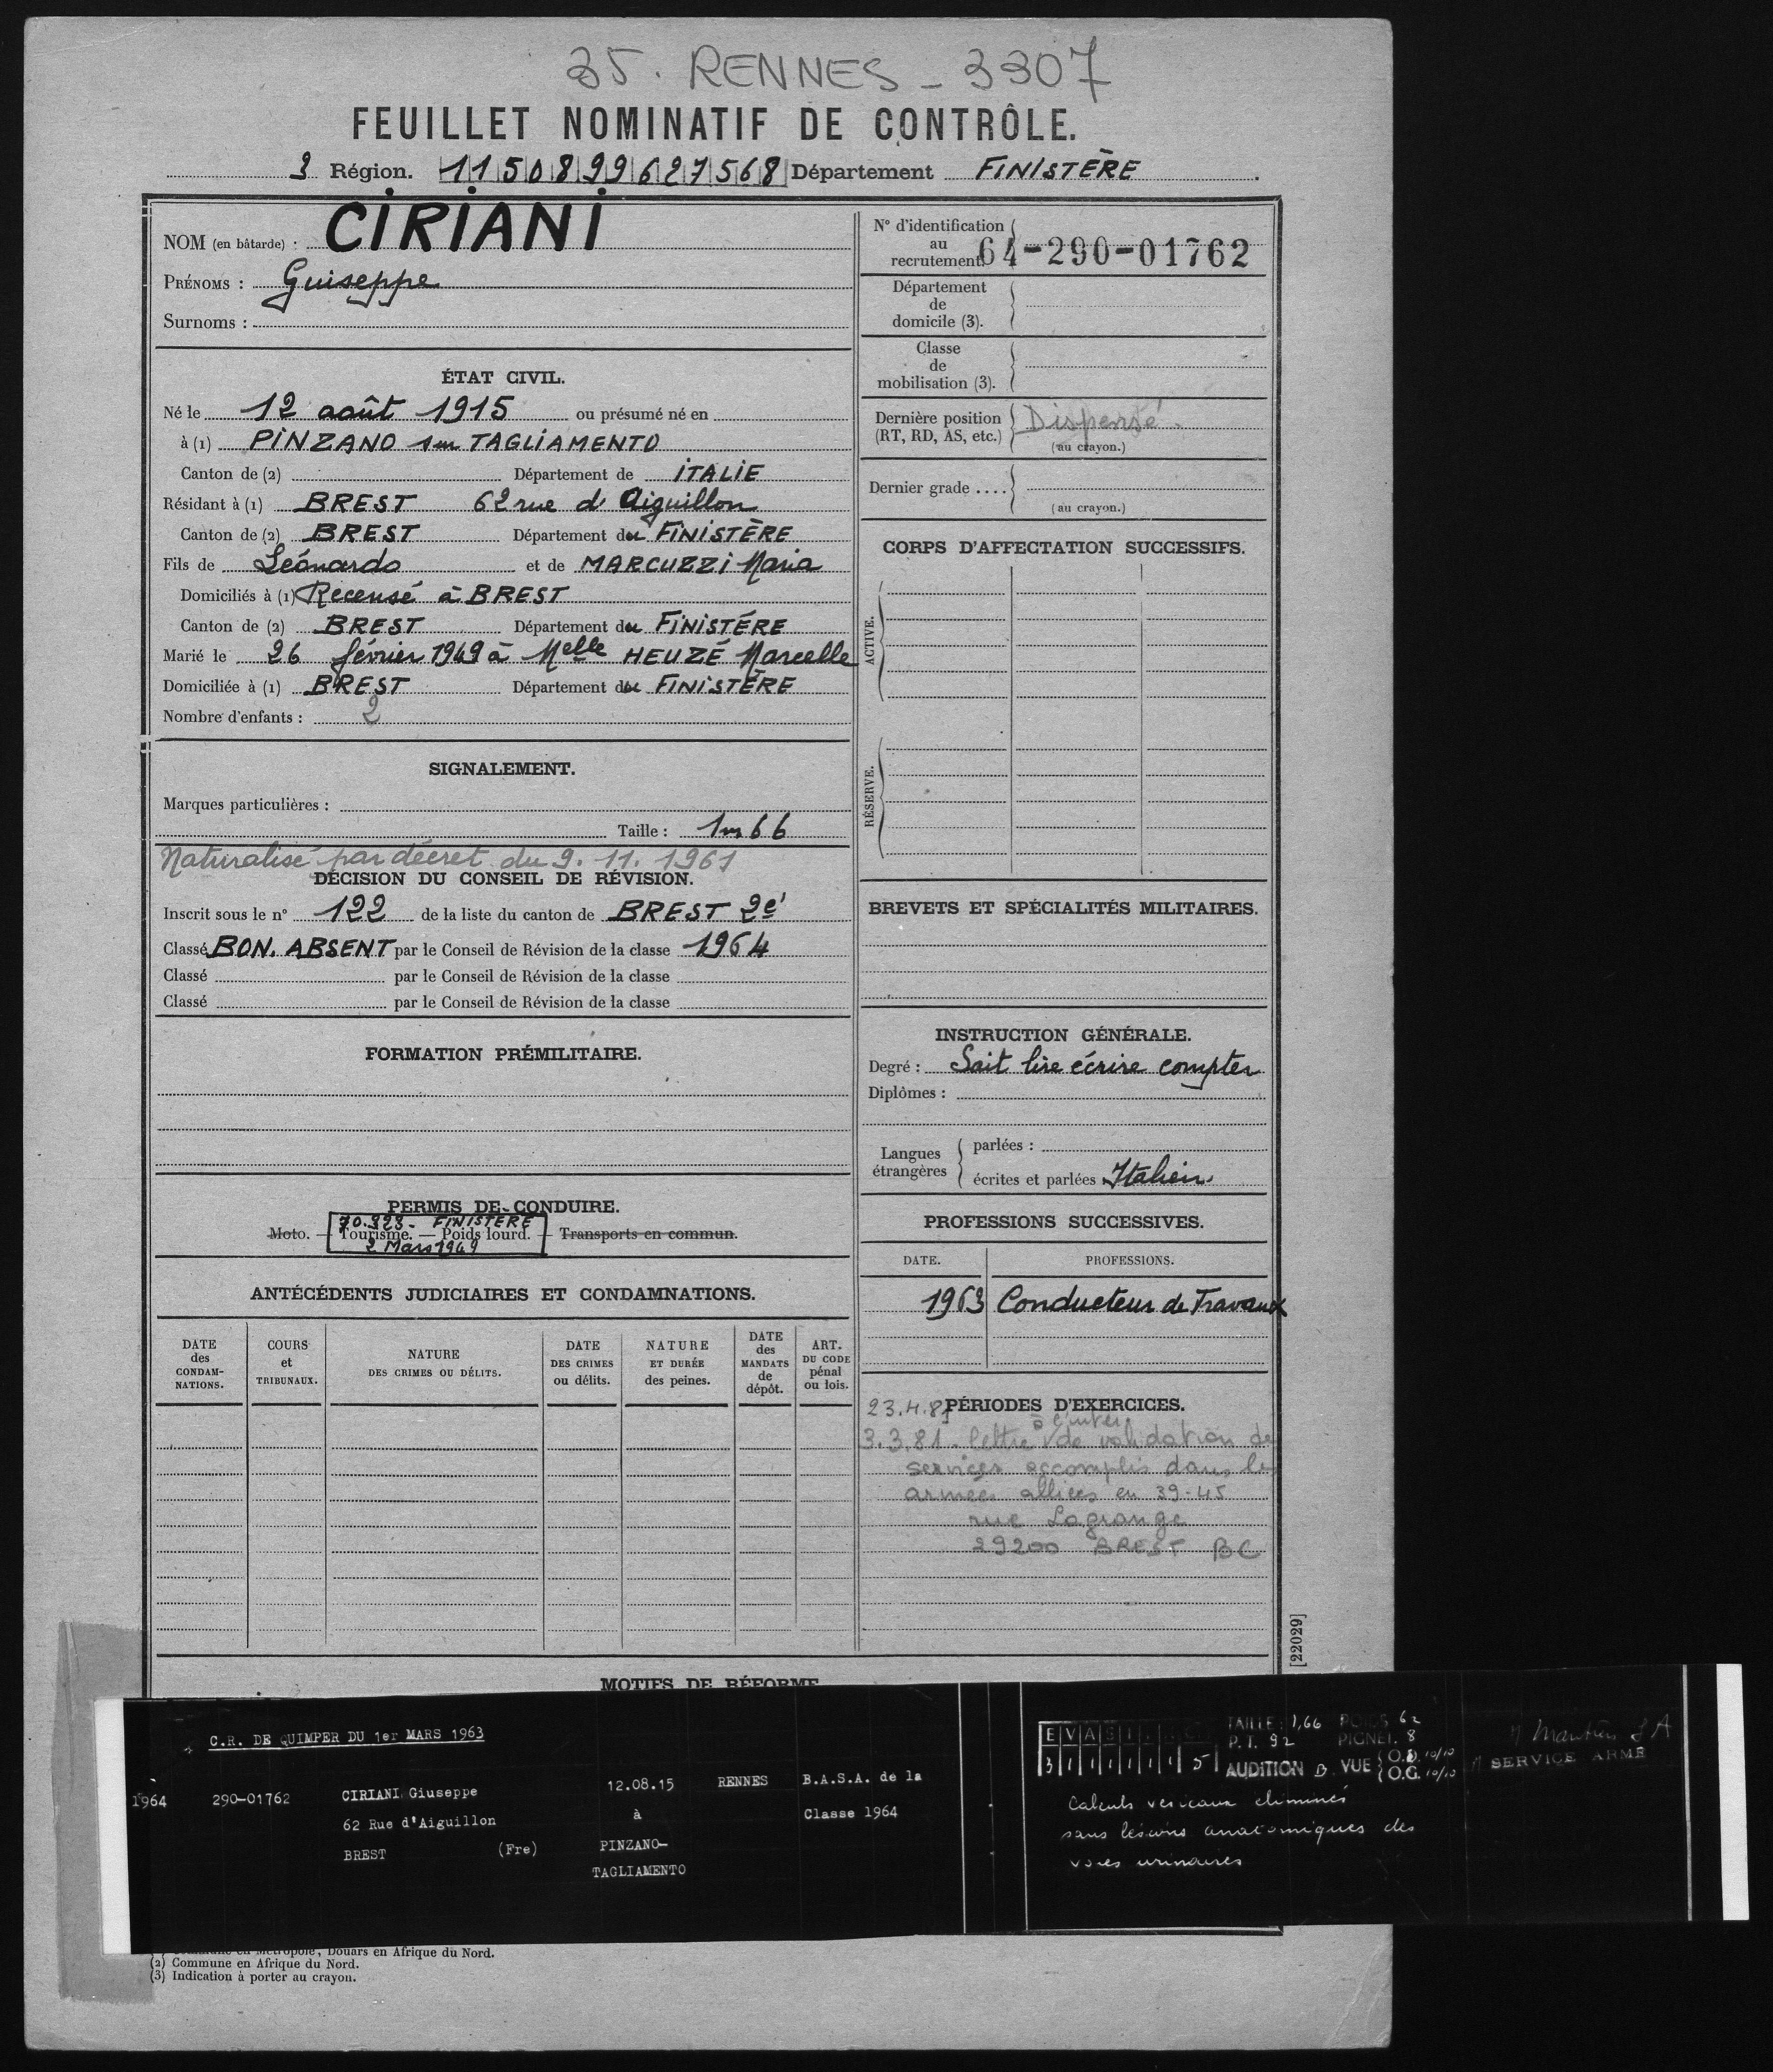 35. RENNES - 3307
FEUILLET NOMINATIF DE CONTRÔLE.
3 Région. 1150899627568 Département FINISTÈRE
NOM (en bâtarde) : CIRIANI
PRÉNOMS : Guiseppe
Surnoms :
ÉTAT CIVIL.
Né le 12 août 1915 ou présumé né en
à (1) PINZANO sur TAGLIAMENTO
Canton de (2) Département de ITALIE
Résidant à (1) BREST 62 rue d'Aiguillon
Canton de (2) BREST Département du FINISTÈRE
Fils de Léonardo et de MARCUZZI Maria
Domiciliés à (1) Recensé à BREST
Canton de (2) BREST Département du FINISTÈRE
Marié le 26 février 1949 à Melle HEUZÉ Marcelle
Domiciliée à (1) BREST Département du FINISTÈRE
Nombre d'enfants : 2
SIGNALEMENT.
Marques particulières :
Taille : 1m66
Naturalisé par décret du 9.11.1961
DÉCISION DU CONSEIL DE RÉVISION.
Inscrit sous le n° 122 de la liste du canton de BREST 2e
Classé BON. ABSENT par le Conseil de Révision de la classe 1964
Classé par le Conseil de Révision de la classe
Classé par le Conseil de Révision de la classe
FORMATION PRÉMILITAIRE.
PERMIS DE CONDUIRE.
70.323 - FINISTERE
Moto. — Tourisme. — Poids lourd. — Transports en commun.
2 Mars 1949
ANTÉCÉDENTS JUDICIAIRES ET CONDAMNATIONS.
DATE des CONDAMNATIONS.
COURS et TRIBUNAUX.
NATURE DES CRIMES OU DÉLITS.
DATE DES CRIMES ou délits.
NATURE ET DURÉE des peines.
DATE des MANDATS de dépôt.
ART. DU CODE pénal ou lois.
MOTIFS DE RÉFORME
N° d'identification au recrutement 64-290-01762
Département de domicile (3).
Classe de mobilisation (3).
Dernière position (RT, RD, AS, etc.) Dispensé.
(au crayon.)
Dernier grade ....
(au crayon.)
CORPS D'AFFECTATION SUCCESSIFS.
ACTIVE.
RÉSERVE.
BREVETS ET SPÉCIALITÉS MILITAIRES.
INSTRUCTION GÉNÉRALE.
Degré : Sait lire écrire compter
Diplômes :
Langues étrangères
parlées :
écrites et parlées Italien.
PROFESSIONS SUCCESSIVES.
DATE. PROFESSIONS.
1963 Conducteur de Travaux
23.4.81 PÉRIODES D'EXERCICES.
3.3.81. lettre de validation de
services accomplis dans les
armées alliées en 39-45
rue Lagrange
29200 BREST BC
[22029]
C.R. DE QUIMPER DU 1er MARS 1963
1964 290-01762 CIRIANI Giuseppe 12.08.15 RENNES B.A.S.A. de la
62 Rue d'Aiguillon à Classe 1964
BREST (Fre) PINZANO-
TAGLIAMENTO
E V A S I
3 1 1 1 1 1 5
TAILLE 1,66 POIDS 62
P.T. 92 PIGNET. 8
AUDITION B VUE O.D. 10/10
O.G. 10/10
Calculs vésicaux éliminés
sans lésions anatomiques des
voies urinaires
SERVICE ARMÉ
Commune en Métropole, Douars en Afrique du Nord.
(2) Commune en Afrique du Nord.
(3) Indication à porter au crayon.